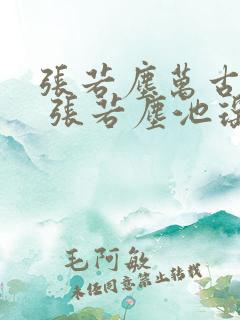 張若塵萬古
張若塵池瑤
毛阿敏
未经同意禁止转载